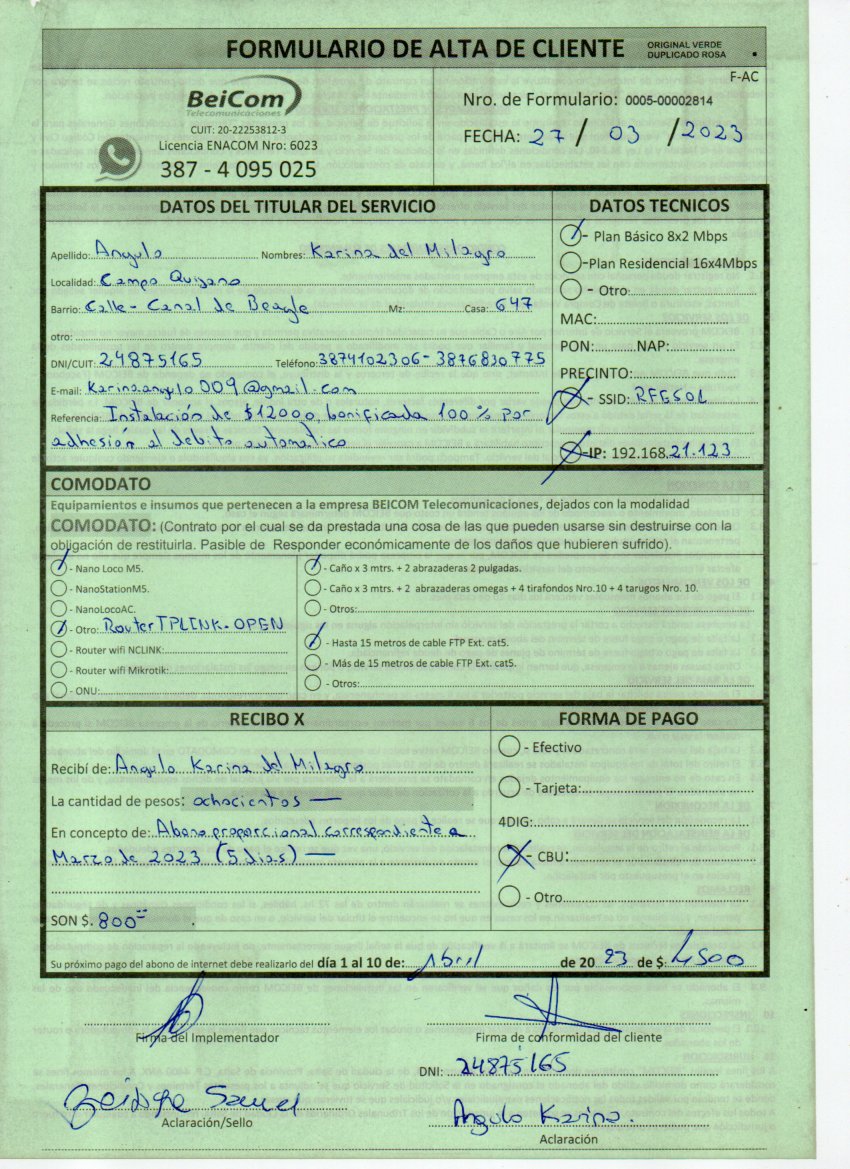 FORMULARIO DE ALTA DE CLIENTE ORIGINAL VERDE DUPLICADO ROSA
F-AC
BeiCom
Telecomunicaciones
CUIT: 20-22253812-3
Licencia ENACOM Nro: 6023
387 - 4 095 025
Nro. de Formulario: 0005-00002814
FECHA: 27 / 03 / 2023
DATOS DEL TITULAR DEL SERVICIO
Apellido: Angulo Nombres: Karina del Milagro
Localidad: Campo Quijano
Barrio: Calle - Canal de Beagle Mz: Casa: 647
otro:
DNI/CUIT: 24875165 Teléfono: 3874102306 - 3876830775
E-mail: Karinaangulo009@gmail.com
Referencia: Instalación de $12000, bonificada 100% por
adhesión al debito automatico
DATOS TECNICOS
- Plan Básico 8x2 Mbps
-Plan Residencial 16x4Mbps
- Otro:
MAC:
PON: NAP:
PRECINTO:
- SSID: RFESOL
-IP: 192.168.21.123
COMODATO
Equipamientos e insumos que pertenecen a la empresa BEICOM Telecomunicaciones, dejados con la modalidad
COMODATO: (Contrato por el cual se da prestada una cosa de las que pueden usarse sin destruirse con la
obligación de restituirla. Pasible de Responder económicamente de los daños que hubieren sufrido).
- Nano Loco M5.
- NanoStationM5.
- NanoLocoAC.
- Otro: Router TPLINK - OPEN
- Router wifi NCLINK:
- Router wifi Mikrotik:
- ONU:
- Caño x 3 mtrs. + 2 abrazaderas 2 pulgadas.
- Caño x 3 mtrs. + 2 abrazaderas omegas + 4 tirafondos Nro.10 + 4 tarugos Nro. 10.
- Otros:
- Hasta 15 metros de cable FTP Ext. cat5.
- Más de 15 metros de cable FTP Ext. cat5.
- Otros:
RECIBO X
Recibí de: Angulo Karina del Milagro
La cantidad de pesos: ochocientos —
En concepto de: Abono proporcional correspondiente a
Marzo de 2023 (5 dias) —
SON $. 800
FORMA DE PAGO
- Efectivo
- Tarjeta:
4DIG:
- CBU:
- Otro
Su próximo pago del abono de internet debe realizarlo del día 1 al 10 de: Abril de 20 23 de $: 4500
Firma del Implementador
Aclaración/Sello
Firma de conformidad del cliente
DNI: 24875165
Angulo Karina.
Aclaración